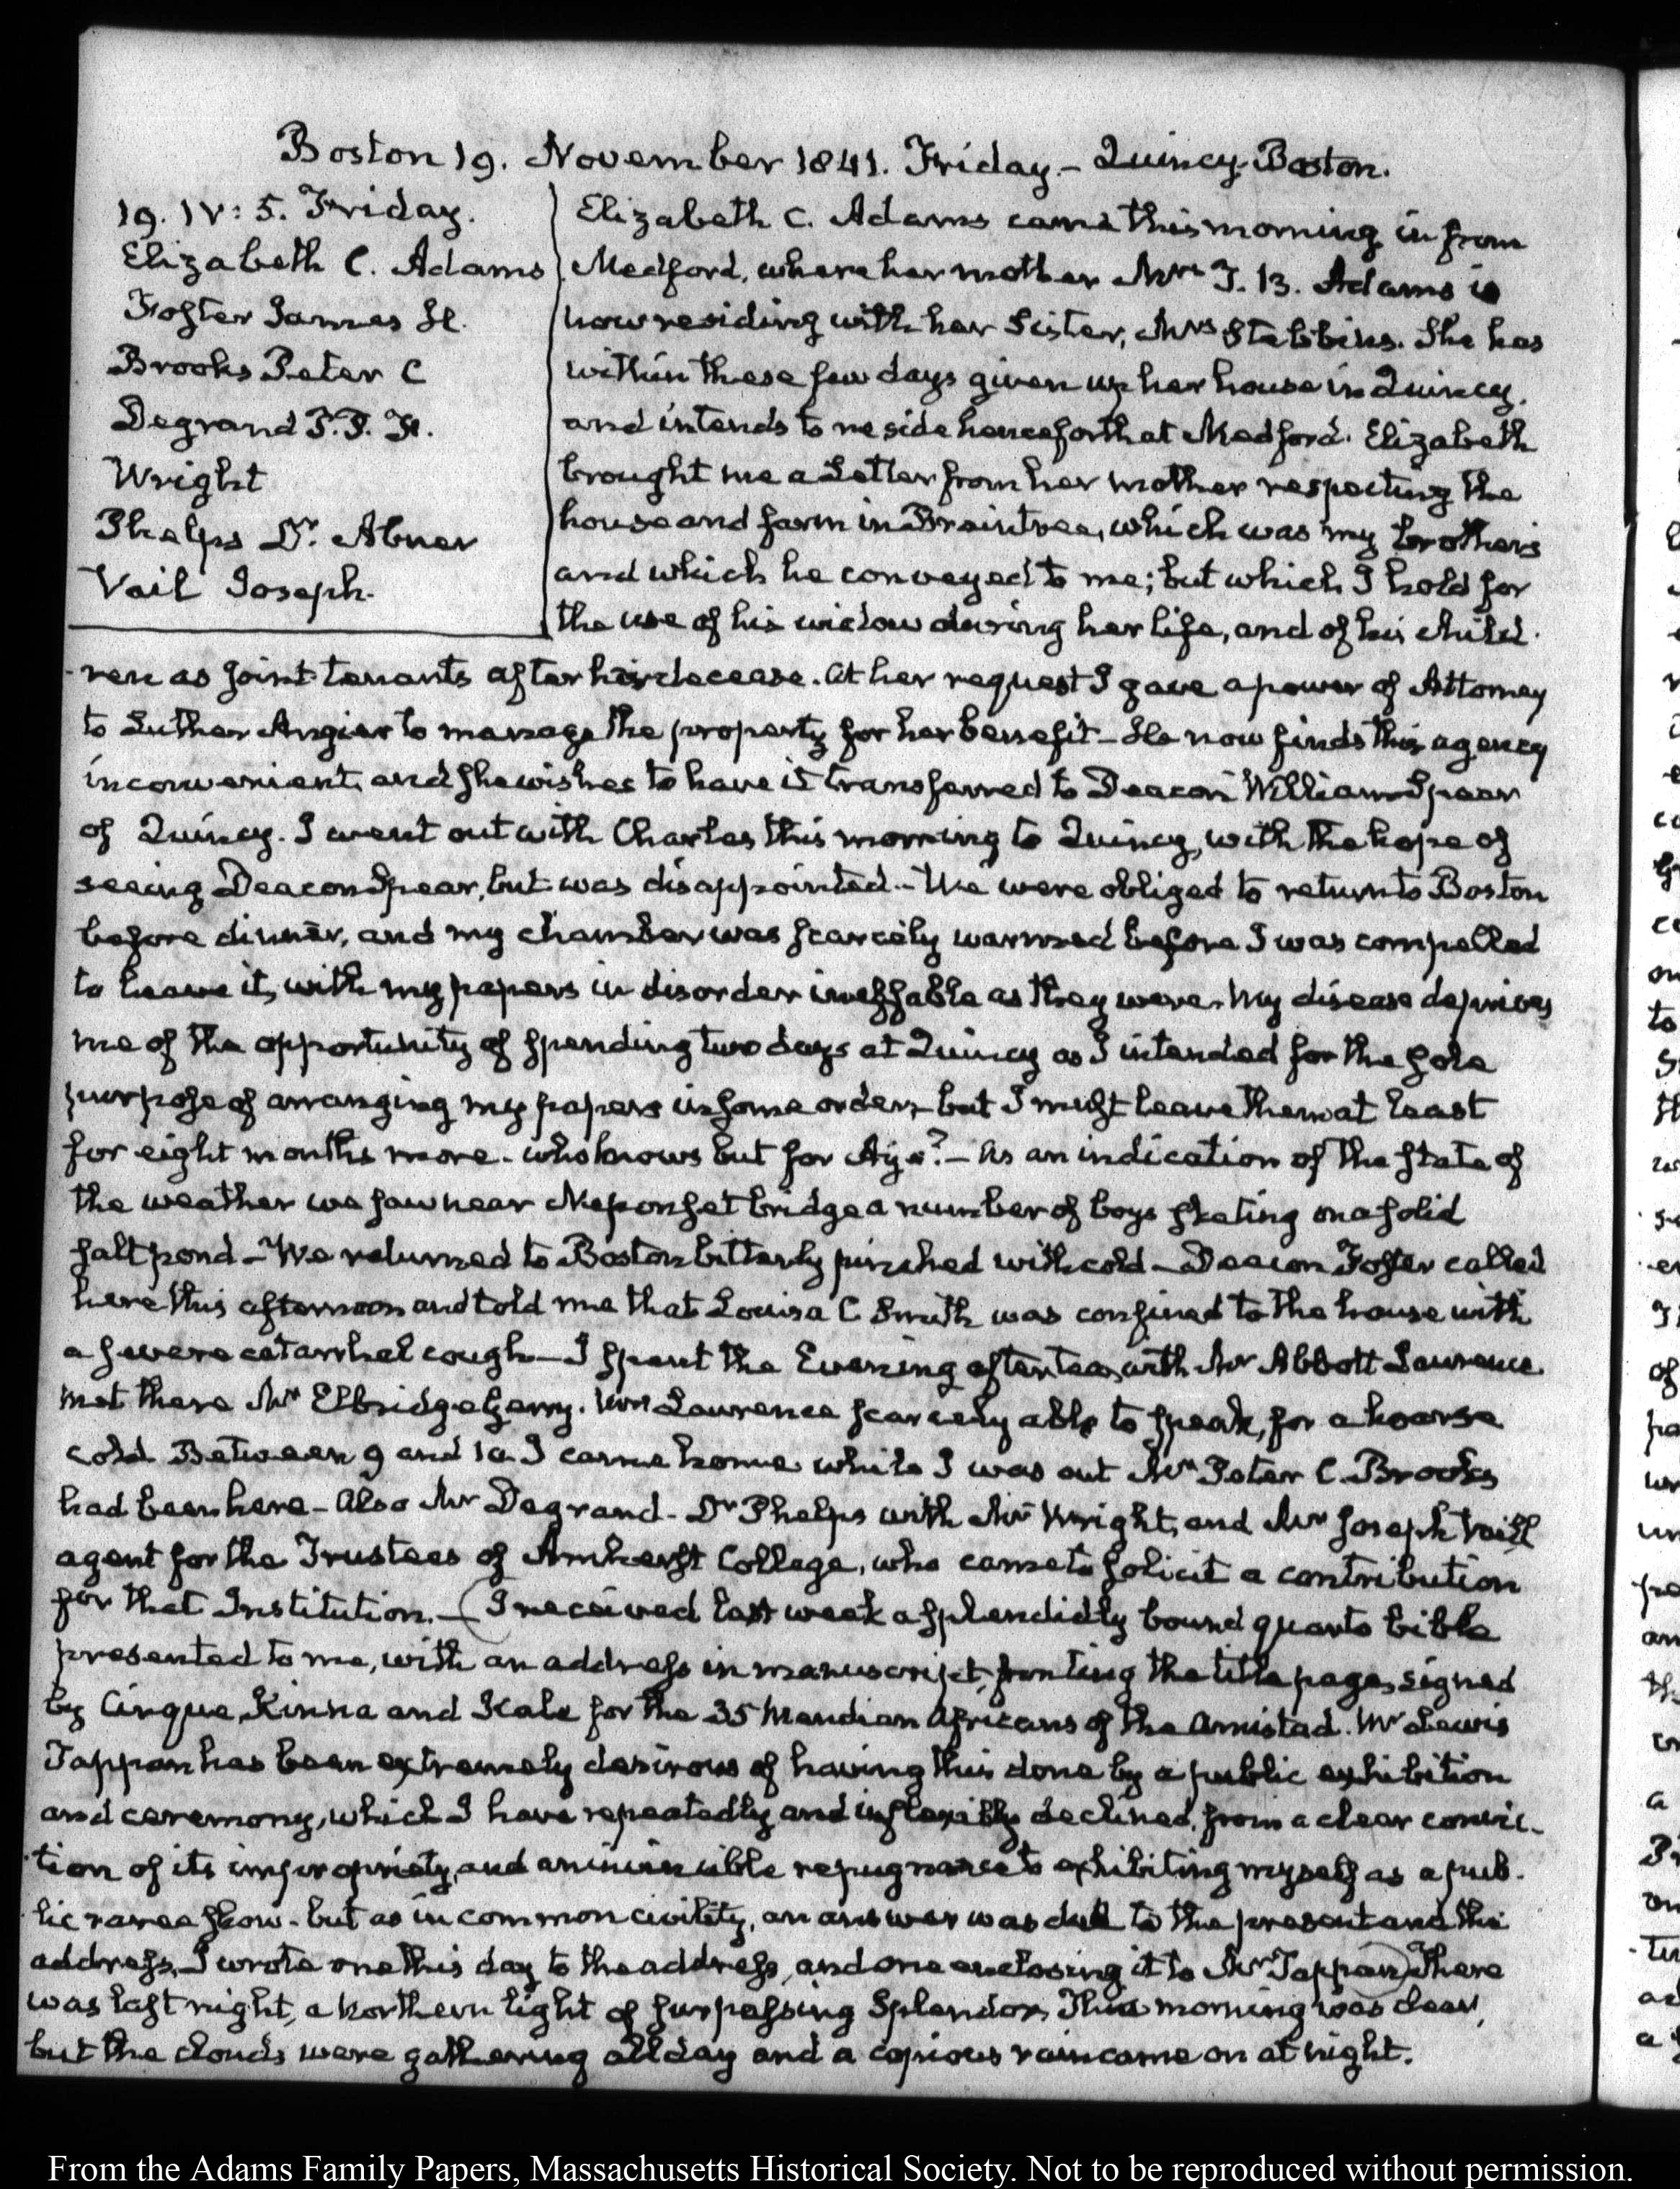 Boston 19. November 1841. Friday.- Quincy-Boston.
19. IV: 5. Friday.
Elizabeth C. Adams
Foster James H.
Brooks Peter C
Degrand P. P. F.
Wright
Phelps Dr. Abner
Vail Joseph.
Elizabeth C. Adams came this morning in from
Medford, where her mother Mrs T. B. Adams is
now residing with her Sister, Mrs Stebbins. She has
within these few days given up her house in Quincy.
and intends to reside henceforth at Medford. Elizabeth
brought me a Letter from her mother respecting the
house and farm in Braintree, which was my brothers
and which he conveyed to me; but which I hold for
the use of his widow during her life, and of his child-
-ren as joint-tenants after her decease. At her request I gave a power of Attorney
to Luther Angier to manage the property for her benefit- He now finds this agency
inconvenient, and she wishes to have it transferred to Deacon William Spear
of Quincy. I went out with Charles this morning to Quincy, with the hope of
seeing Deacon Spear, but was disappointed.- We were obliged to return to Boston
before dinner, and my chamber was scarcely warmed before I was compelled
to leave it, with my papers in disorder ineffable as they were. My disease deprives
me of the opportunity of spending two days at Quincy as I intended for the sole
purpose of arranging my papers in some order, but I must leave them at least
for eight months more. who knows but for Aye?- As an indication of the state of
the weather we saw near Neponset bridge a number of boys skating on a solid
salt pond-We returned to Boston bitterly pinched with cold-Deacon Foster called
here this afternoon and told me that Louisa C Smith was confined to the house with
a severe catarrhal cough-I spent the Evening after tea, with Mr Abbott Lawrence.
met there Mr Elbridge Gerry. Mrs Lawrence scarcely able to speak, for a hoarse
cold. Between 9 and 10. I came home while I was out Mr Peter C. Brooks
had been here- Also Mr Degrand- Dr Phelps with Mr Wright, and Mr Joseph Vaill
agent for the Trustees of Amherst College, who came to solicit a contribution
for that Institution.-(I received last week a splendidly bound quarto bible
presented to me, with an address in manuscript, fronting the title page, signed
by Cinque, Kinna and Kale for the 35 Mendian Africans of the Amistad. Mr Lewis
Tappan has been extremely desirous of having this done by a public exhibition
and ceremony, which I have repeatedly and inflexibly declined, from a clear convic-
-tion of its impropriety, and an invincible repugnance to exhibiting myself as a pub-
-lic raree show- but as in common civility, an answer was due to the present and the
address, I wrote one this day to the address, and one enclosing it to Mr Tappan) There
was last night, a Northern light of surpassing Splendor, This morning was clear,
but the clouds were gathering all day and a copious rain came on at night.
From the Adams Family Papers, Massachusetts Historical Society. Not to be reproduced without permission.